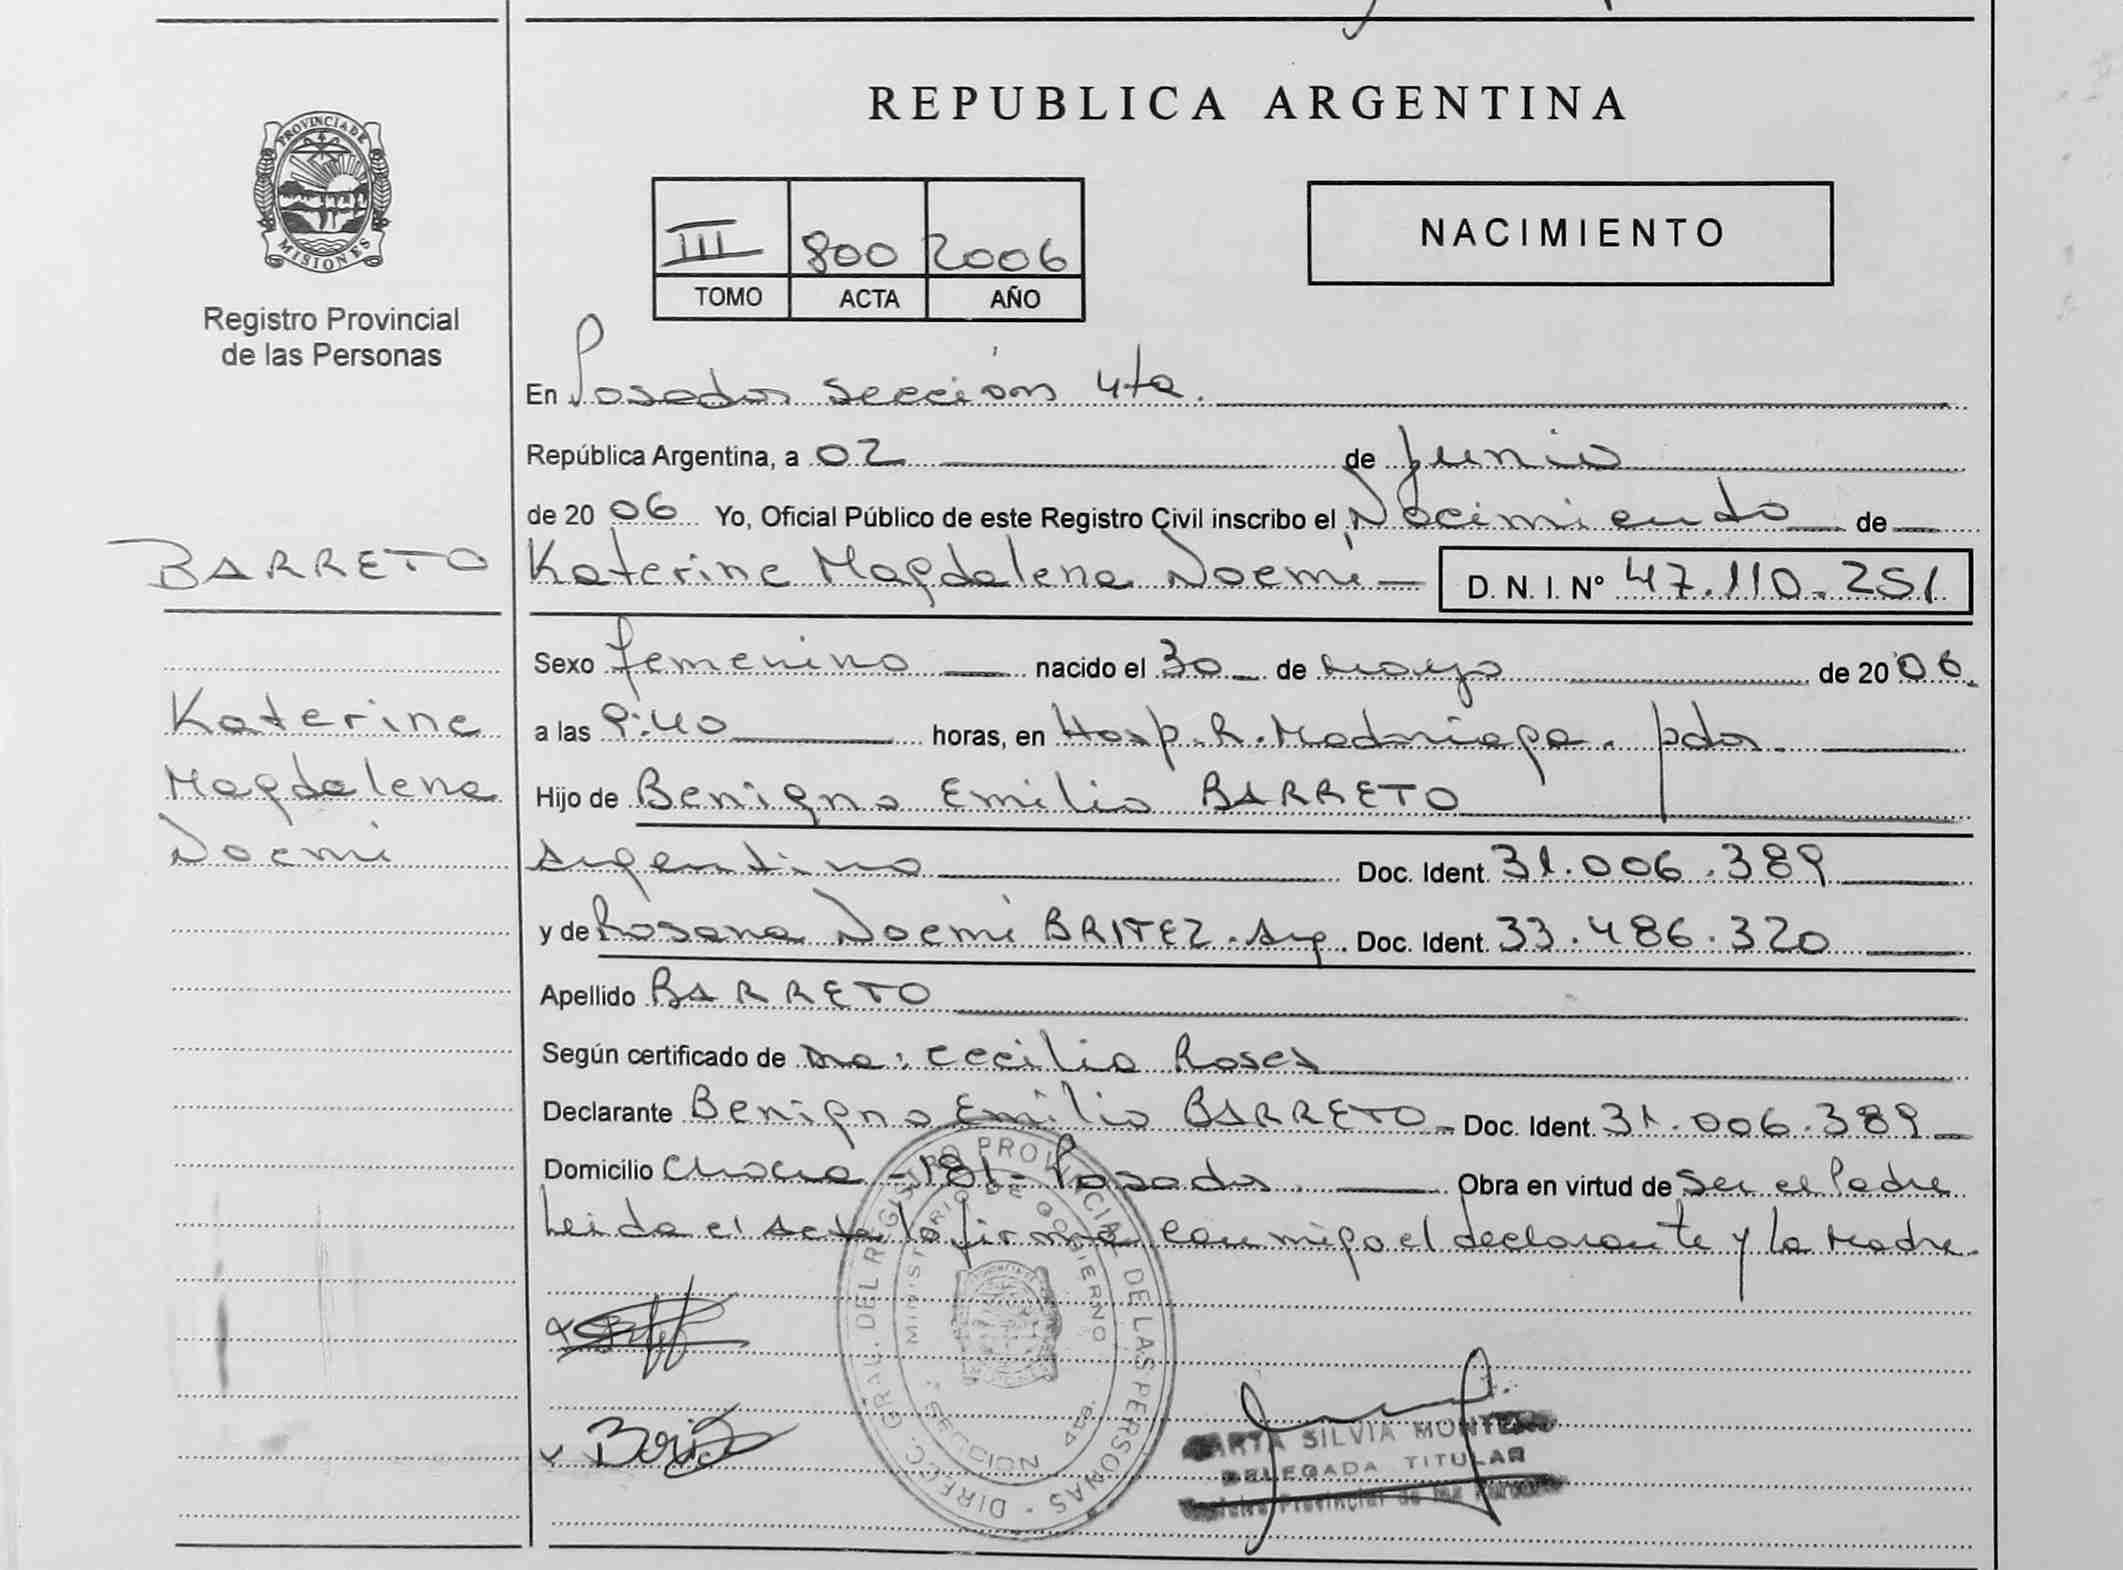 REPUBLICA ARGENTINA
PROVINCIA DE MISIONES
Registro Provincial
de las Personas
III 800 2006
TOMO ACTA AÑO
NACIMIENTO
En Posadas sección 4ta.
República Argentina, a 02 de Junio
de 2006 Yo, Oficial Público de este Registro Civil inscribo el Nacimiento de
BARRETO
Katerine Magdalena Noemí D. N. I. Nº 47.110.251
Sexo femenino nacido el 30 de mayo de 2006.
Katerine
Magdalena
Noemi
a las 9:40 horas, en Hosp. R. Madariaga. pdas.
Hijo de Benigno Emilio BARRETO
Argentino Doc. Ident. 31.006.389
y de Rosana Noemí BRITEZ. Arg. Doc. Ident. 33.486.320
Apellido BARRETO
Según certificado de Dra: Cecilia Roses
Declarante Benigno Emilio BARRETO Doc. Ident. 31.006.389
Domicilio Chacra -181- Posadas. Obra en virtud de Ser el Padre
Leida el Acta la firma conmigo el declarante y la Madre.
DIRECC. GRAL. DEL REGISTRO PROVINCIAL DE LAS PERSONAS
MINISTERIO DE GOBIERNO
SECCION 4ta.
SILVIA MONTERO
DELEGADA TITULAR
Registro Provincial de las Personas